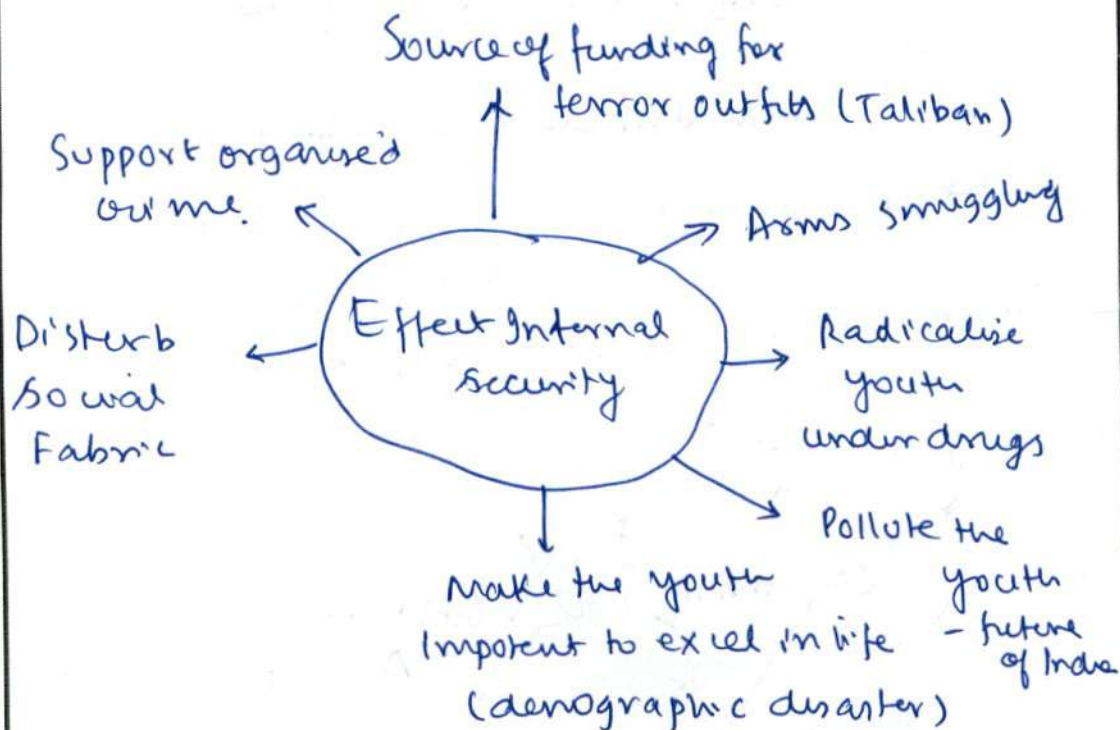 Source of funding for
terror outfits (Taliban)
Support organised
crime.
Arms smuggling
Effect Internal
security
Disturb
social
Fabric
Radicalise
youth
under drugs
Pollute the
youth
- future
of India
Make the youth
Impotent to excel in life
(demographic disaster)